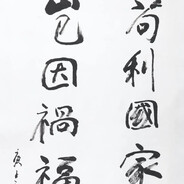 苟利國家
岂因禍福
庚